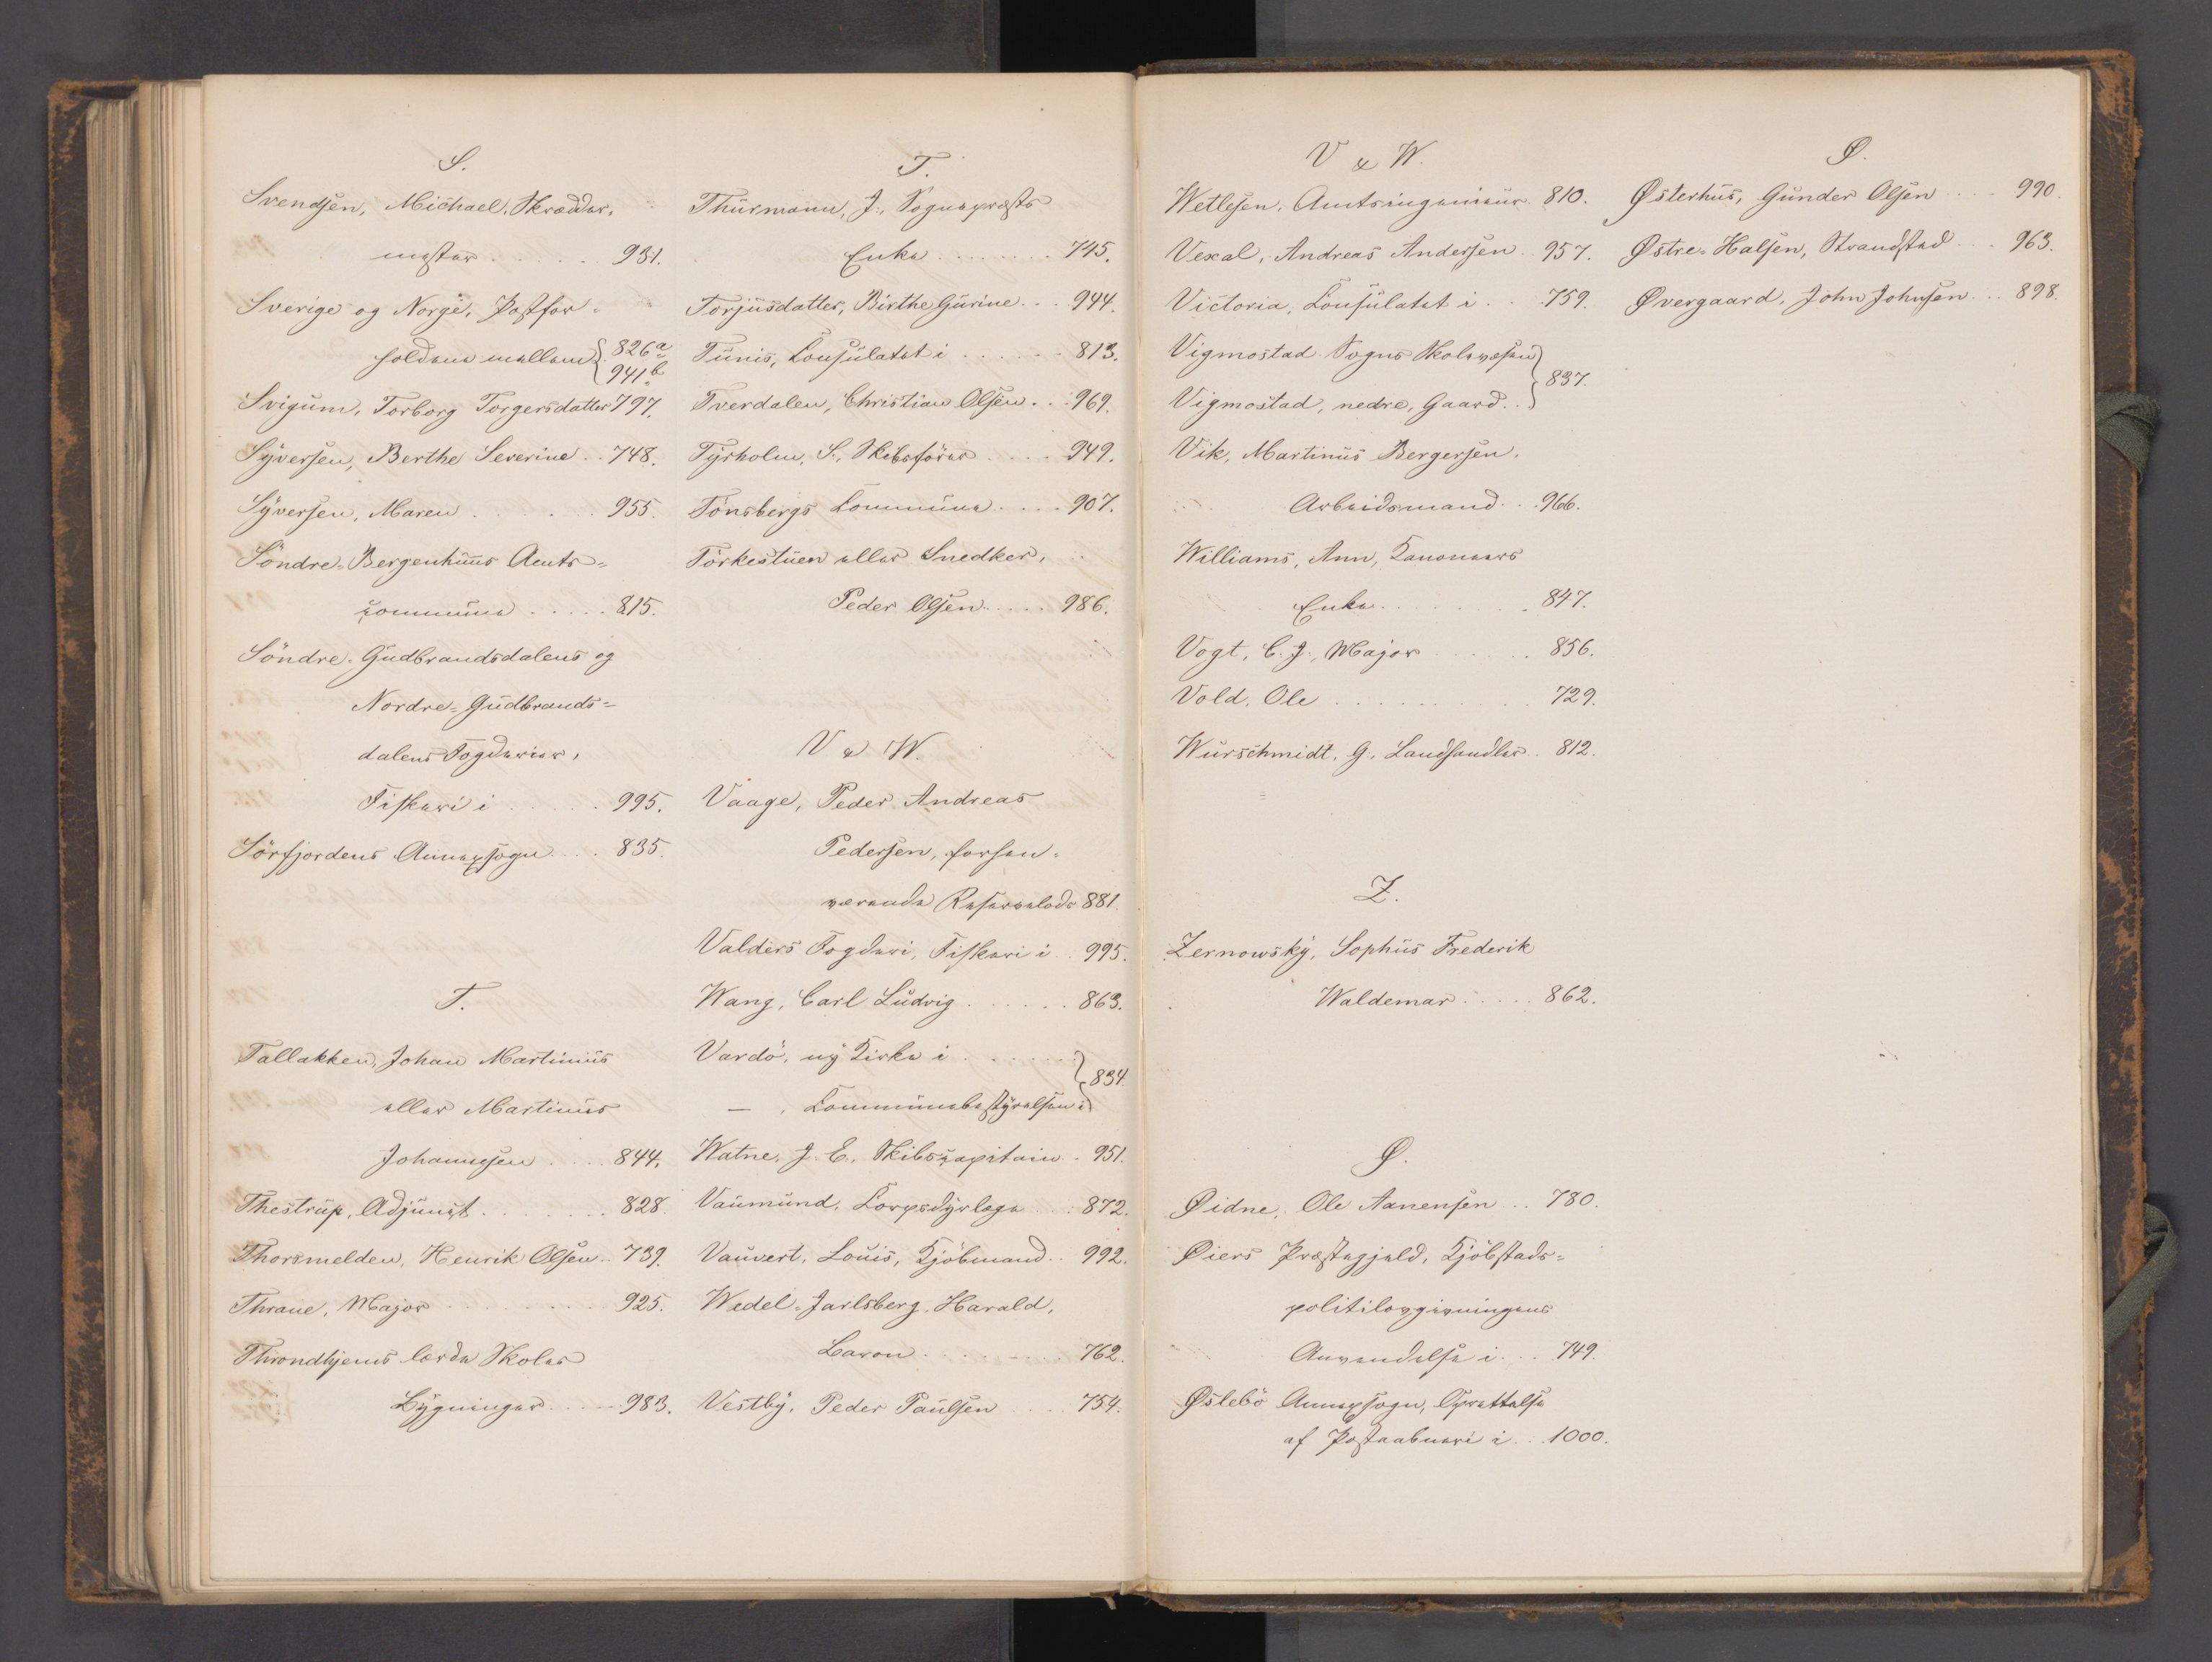 S.
Svendsen, Michael, Skrædder-
mester . . . . . . 931.
Sverige og Norge, Postfor-
holdene mellem { 826a
941b
Svigum, Torborg Torgersdatter 797.
Syversen, Berthe Severine . . 748.
Syversen, Maren . . . . . 955.
Söndre-Bergenhuus Amts-
commune . . . . . 815.
Söndre-Gudbrandsdalens og
Nordre-Gudbrands-
dalens Fogderier,
Fiskeri i . . . . . 995.
Sörfjordens Annexsogn . . . 835.
T.
Tallakken, Johan Martinius
eller Martinus
Johannesen . . . . 844.
Thestrup, Adjunct . . . . . . . 828.
Thorsmelden, Henrik Olsen . . 739.
Thrane, Major . . . . . . . . 925.
Throndhjems lærde Skoles
Bygninger . . . . . 983.
T.
Thurmann, J., Sognepræsts
Enke . . . . . . . . 745.
Torjusdatter, Birthe Gurine . . . 944.
Tunis, Consulatet i . . . . . . 813.
Tverdalen, Christian Olsen . . . 969.
Tyrholm, S., Skibsförer . . . . 949.
Tönsbergs Commune . . . . 907.
Törkestuen eller Snedker,
Peder Olsen . . . . . 986.
V & W.
Vaage, Peder Andreas
Pedersen, forhen-
værende Reservelods 881.
Valders Fogderi, Fiskeri i . . 995.
Wang, Carl Ludvig . . . . . . 863.
Vardö, ny Kirke i . . . . . . . } 834.
— , Communebestyrelsen i
Watne, J. E. Skibscapitain . 951.
Vaumund, Corpsdyrlæge . . . 872.
Vauvert, Louis, Kjöbmand . . 992.
Wedel-Jarlsberg, Harald,
Baron . . . . . . . . . 762.
Vestby, Peder Paulsen . . . . 754.
V & W.
Wetlesen, Amtsingenieur 810.
Vexal, Andreas Andersen . . 957.
Victoria, Consulatet i . . . 759.
Vigmostad Sogns Skolevæsen } 837.
Vigmostad, nedre, Gaard . .
Vik, Martinus Bergersen,
Arbeidsmand . . . 966.
Williams, Ann, Kanoneers
Enke . . . . . . . . . 847.
Vogt, C. J., Major . . . . . . 856.
Vold, Ole . . . . . . . . . . 729.
Würschmidt, G., Landhandler . . 812.
Z.
Zernowsky, Sophus Frederik
Waldemar . . . . . 862.
Ø.
Øidne, Ole Aanensen . . . 780.
Øiers Præstegjeld, Kjöbstads-
politilovgivningens
Anvendelse i . . . 749.
Øslebö Annexsogn, Oprettelse
af Postaabneri i . . . 1000.
Ø.
Østerhus, Gunder Olsen . . . . 990.
Østre-Halsen, Strandsted . . . 963.
Øvergaard, John Johnsen . . . 898.